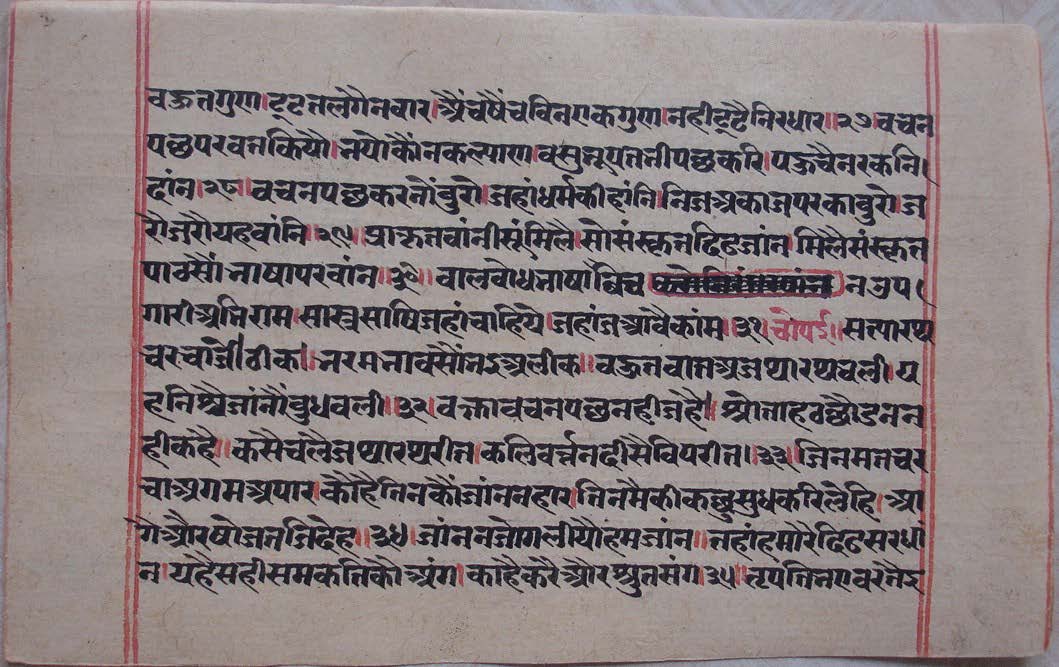 वऊतगुण।टूटतलगैनवार।अैंचषैंचविनराकगुण।नहीटूटैनिरधार॥२७॥वचन
पछपरवतकियौ।नयोकौंनकल्याण।वसुनृपतनीपछकरि।पऊचैनरकनि।
दांन॥२८॥वचनपछकरनौंवुरो।जहांधर्मकीहांनि।निजअकाजपरकावुरो।ज
रोजरौयहवांनि॥२९॥प्राकृतवांनीसुंमिलै।सोसंस्कृतदिढजांन।मिलैसंस्कृत
पावसौं।भाषापरवांन॥३०॥वालवोधभाषाविच नउप।
गारीअतिराम।सास्त्रसाषिजहांचाहिये।जहांनआवैकांम॥३१॥चौपई॥सत्यारथ
चरचाजीठीक॥नरमभावसौंनऽअलीक॥वऊतवातअजथारथचली।य
हनिश्चैजांनौंवुधवली॥३२॥वक्तावचनपछनहीजहै॥श्रोताहठछौडनन
हीकहै॥कसैचलैजथारथरीत।कलिवर्त्तनदीसैविपरीत॥३३॥जिनमतचर
चाअगमअपार।कौहैतिनकौंजांननहार।तिनमैकीकछुसुधकरिलेहि।आ
गैऔरषोजतजिदेह॥३४॥जांननजोगलीयौहमजांन॥तहांहमारैदिढसरधां
न।यहैसहीसमकतिकौअंग।काहैकरैऔरश्रुतमंग३५॥नृपतिनएवरतैइ